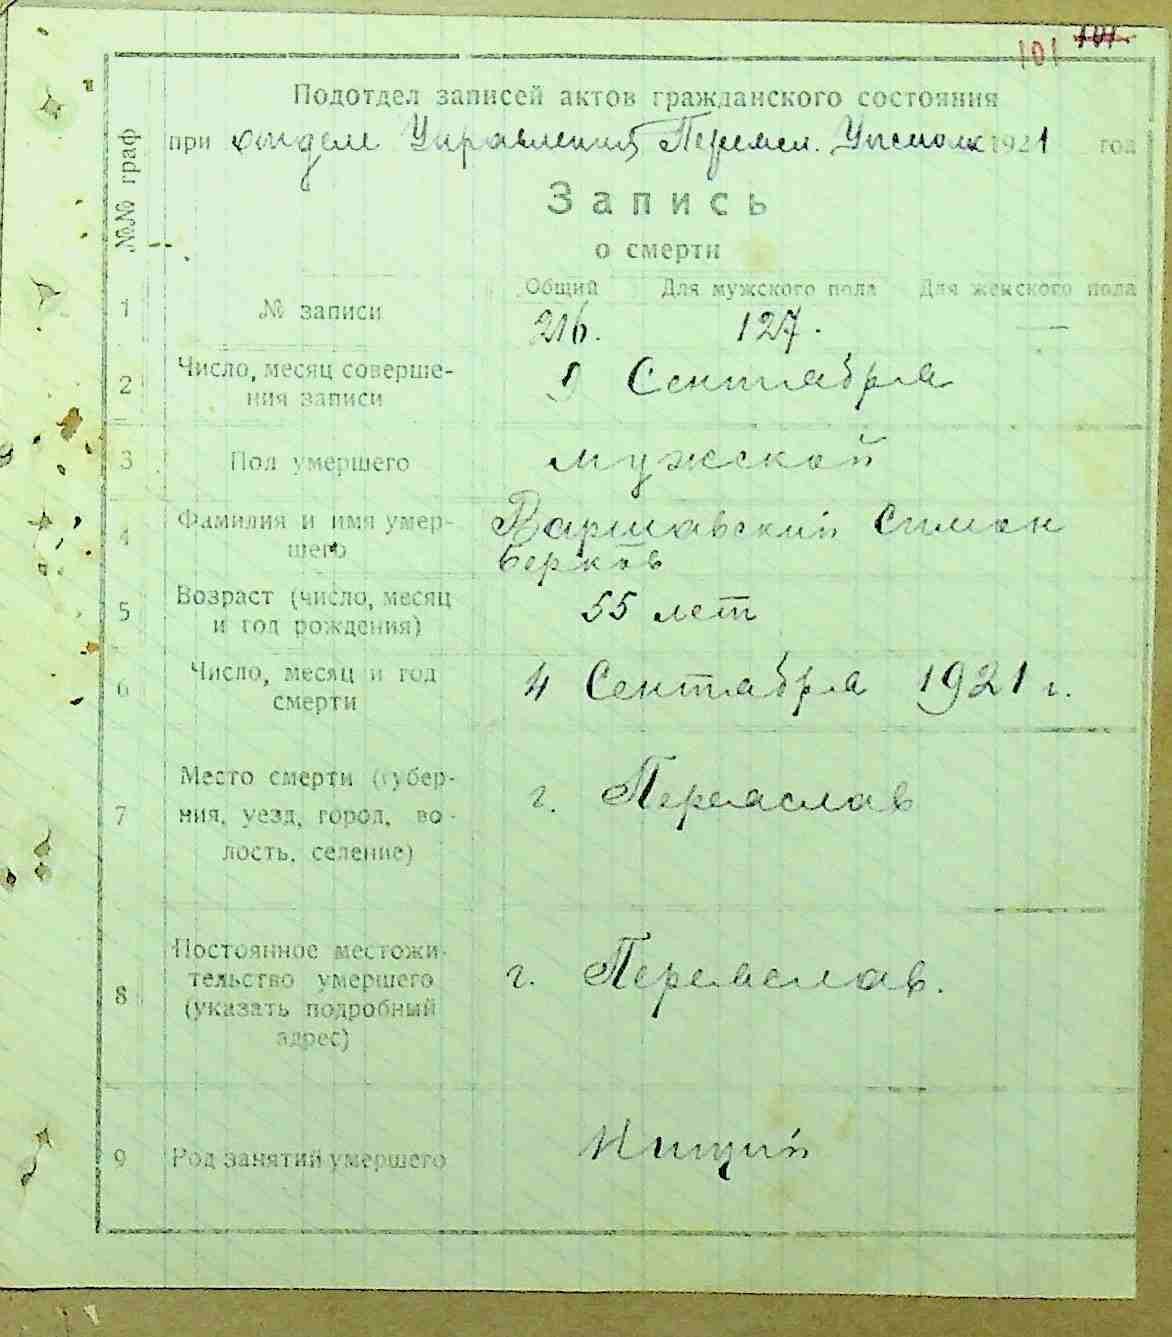 101 101
Подотдел записей актов гражданского состояния
при отделе Управления Переясл. Уисполк 1921 год
Запись
о смерти
№№ граф
Общий Для мужского пола Для женского пола
1 № записи 216. 127. —
2 Число, месяц соверше-
ния записи
9 Сентября
3 Пол умершего мужской
4 Фамилия и имя умер-
шего
Варшавский Симон
Берков
5 Возраст (число, месяц
и год рождения)
55 лет
6 Число, месяц и год
смерти
4 Сентября 1921 г.
7 Место смерти (губер-
ния, уезд, город, во-
лость, селение)
г. Переяслав
8 Постоянное местожи-
тельство умершего
(указать подробный
адрес)
г. Переяслав.
9 Род занятий умершего Нищий